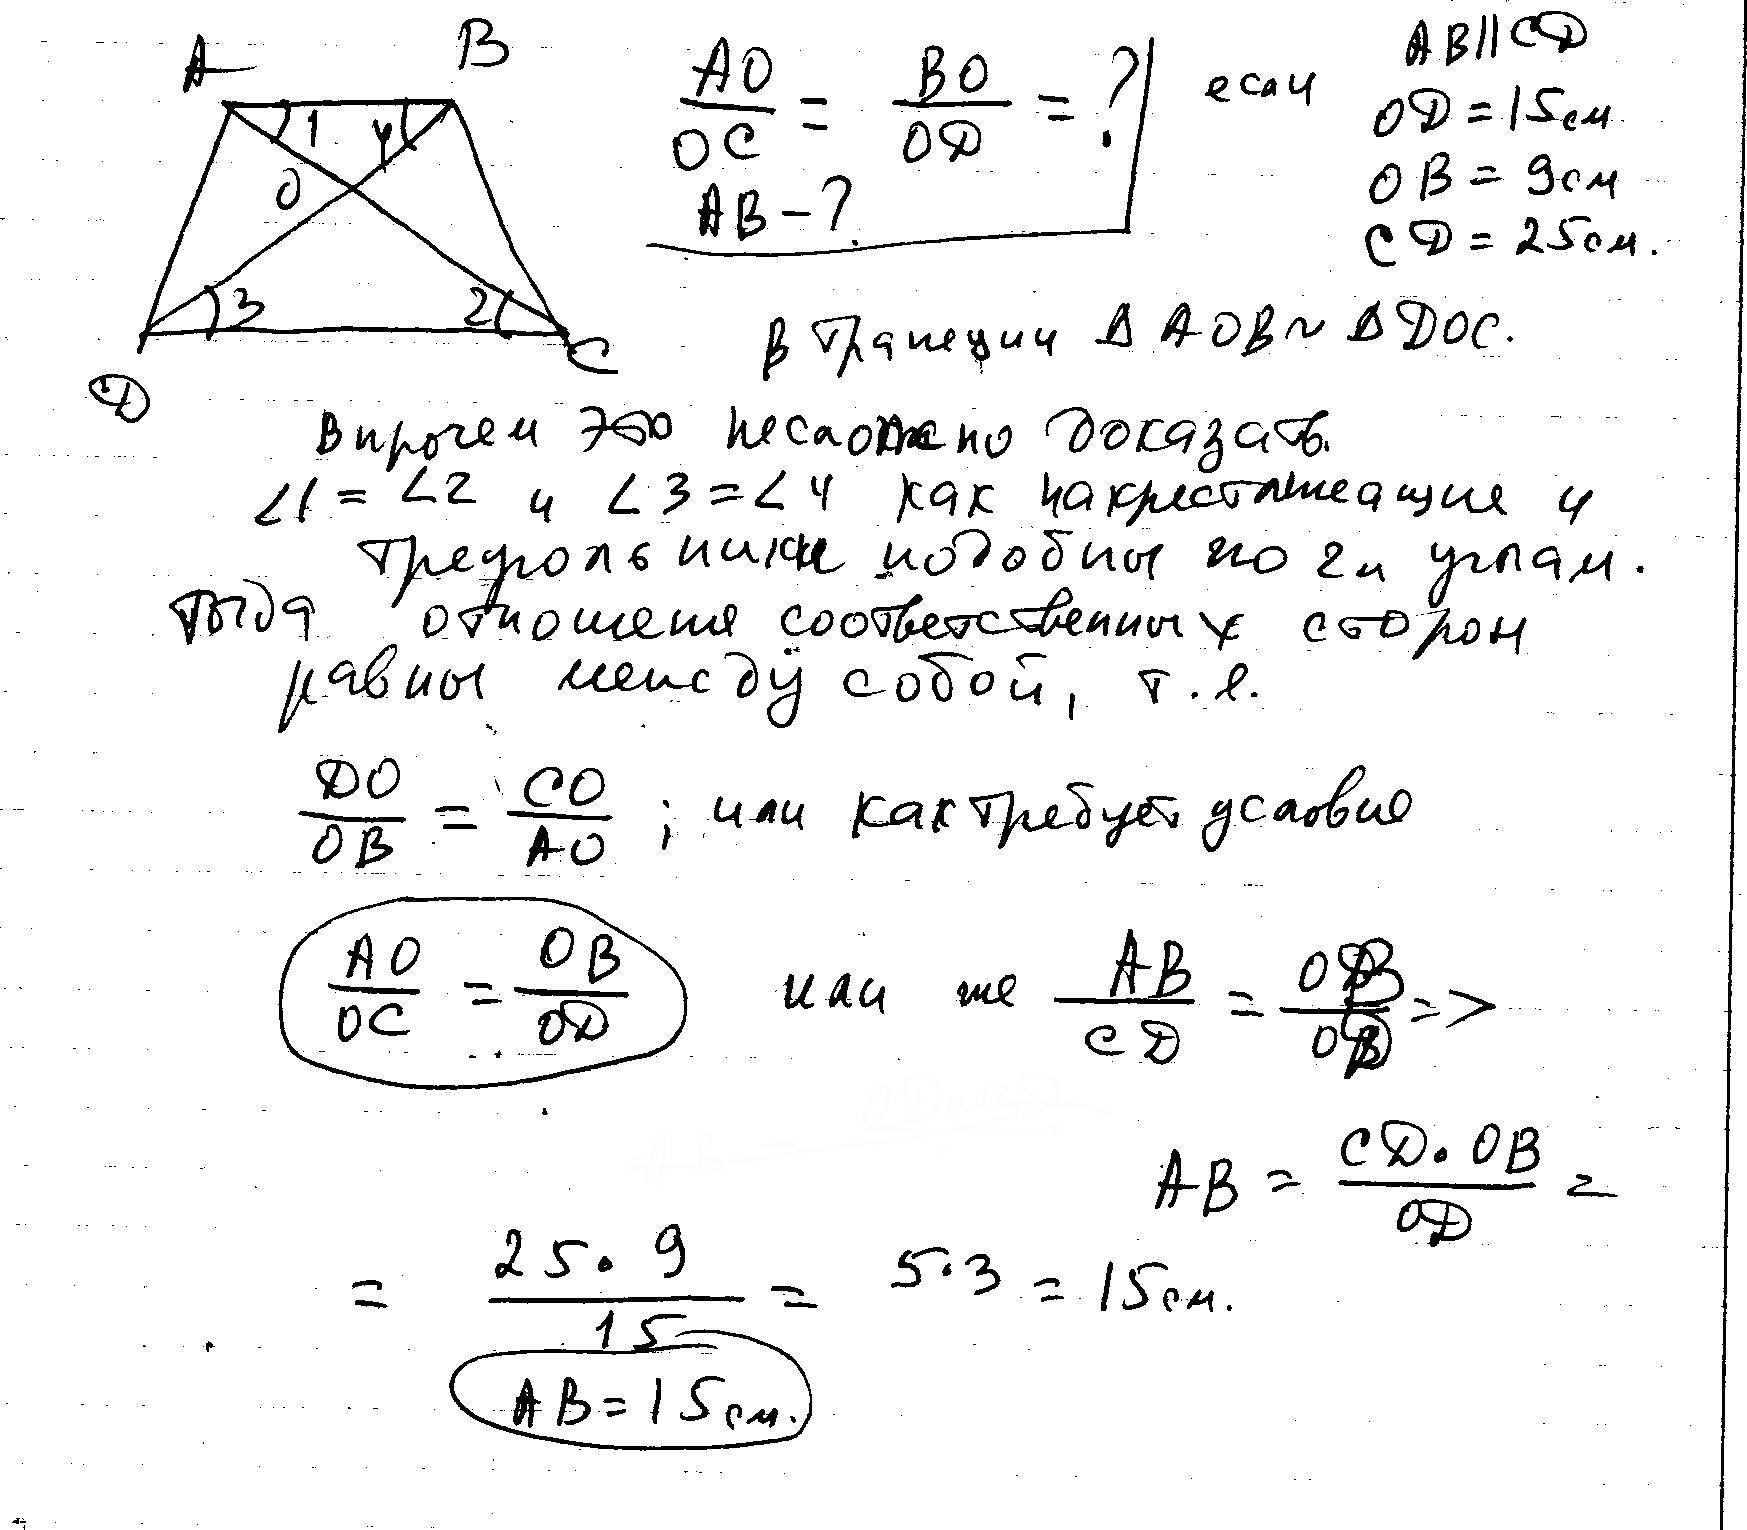 A B
1 4
O
3 2
D C
AO/OC = BO/OD = ? если AB||CD
AB - ? OD = 15см
OB = 9см
CD = 25см.
В трапеции Δ AOB ~ Δ DOC.
Впрочем это несложно доказать.
∠1 = ∠2 и ∠3 = ∠4 как накрестлежащие и
треугольники подобны по 2м углам.
Тогда отношения соответственных сторон
равны между собой, т.е.
DO/OB = CO/AO ; или как требует условие
AO/OC = OB/OD или же AB/CD = OB/OD =>
AB = CD·OB/OD =
= 25·9/15 = 5·3 = 15см.
AB = 15см.